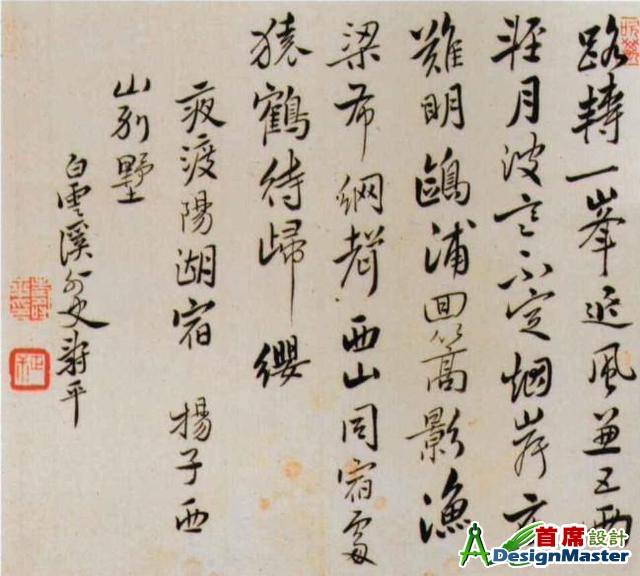 路轉一峯風兼五兩
輕月波不定烟岸
難明鷗浦回篙影漁
梁布網聲西山同宿處
猿鶴待歸纓
夜渡陽湖宿 楊子西
山別墅
白雲溪外史壽平
首席設計
DesignMaster